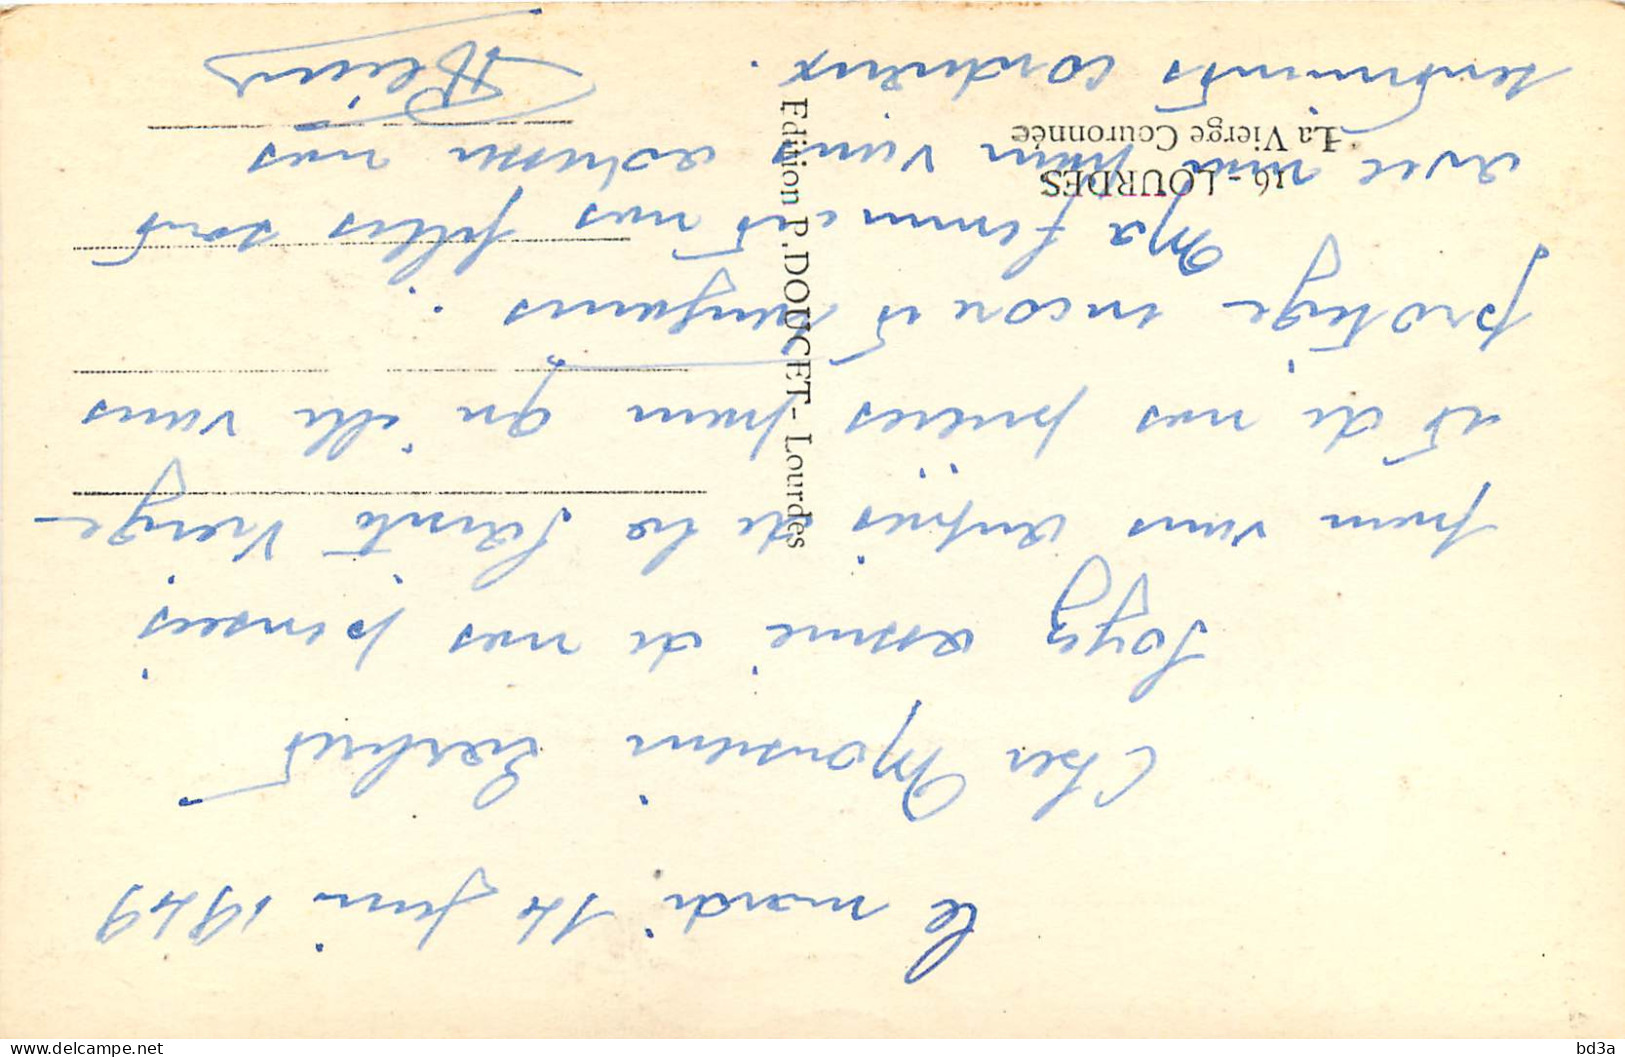 le mardi 14 juin 1949
Cher Monsieur
Soyez assuré de nos pensées
pour vous auprès de la Sainte Vierge
et de nos prières pour qu'elle vous
protège encore et toujours.
Ma femme et nos filles sont
avec moi pour vous adresser nos
sentiments cordiaux.
116 - LOURDES
La Vierge Couronnée
Edition P. DOUCET - Lourdes
bd3a